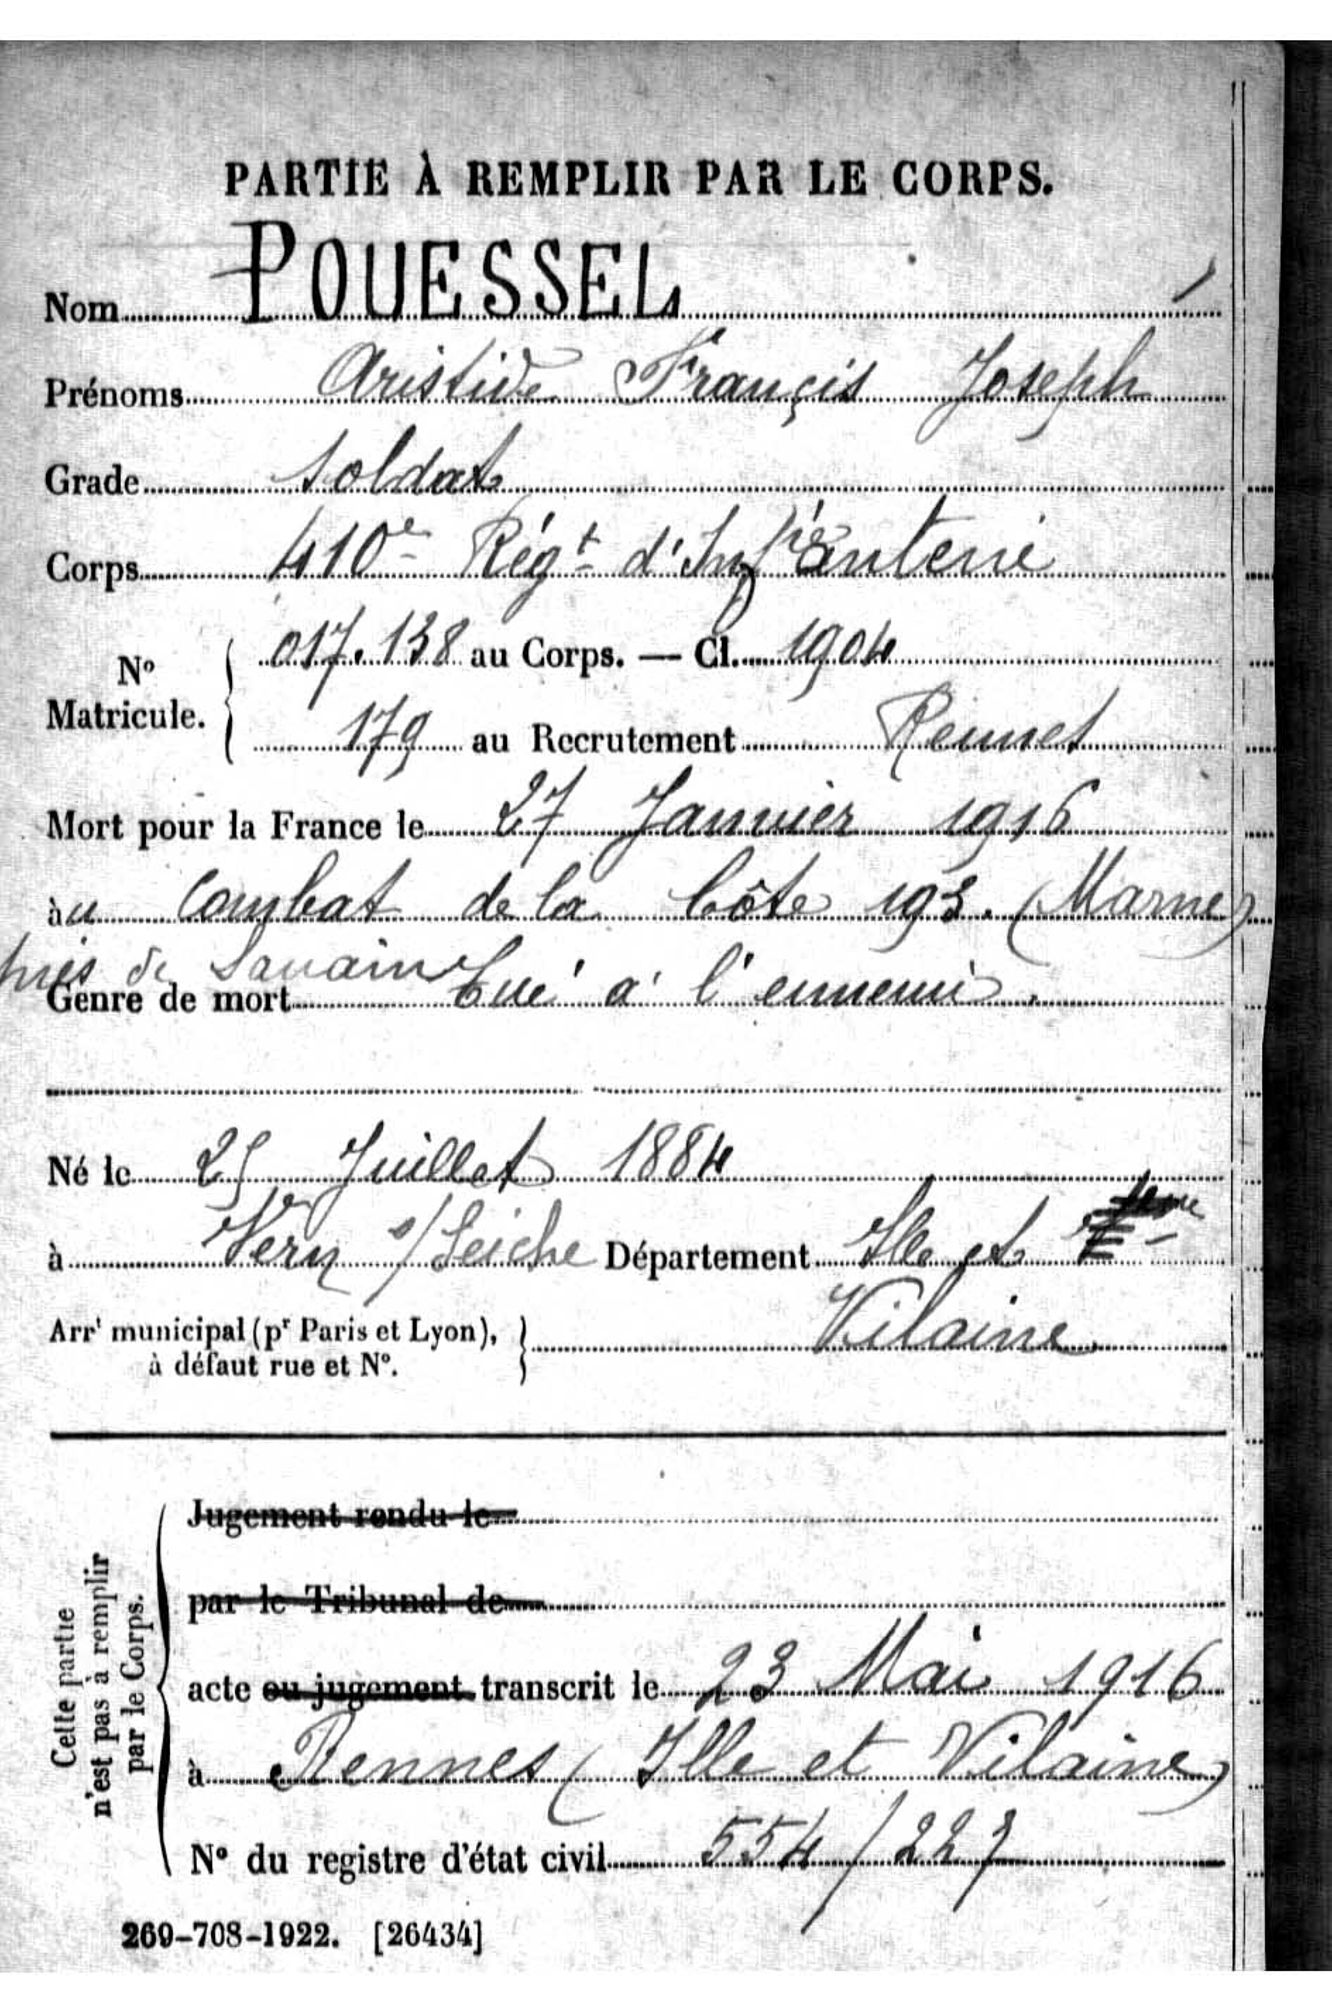 PARTIE À REMPLIR PAR LE CORPS.
Nom POUESSEL
Prénoms Aristide Françis Joseph
Grade Soldat
Corps 410e Régt d'Infanterie
No Matricule. 017.138 au Corps. — Cl. 1904
179 au Recrutement Rennes
Mort pour la France le 27 Janvier 1916
àu Combat de la Côte 193. (Marne)
près de Souain
Genre de mort Tué à l'ennemi.
Né le 25 Juillet 1884
à Vern s/Seiche Département Ille et
Vilaine
Arrt municipal (pr Paris et Lyon),
à défaut rue et No.
Cette partie
n'est pas à remplir
par le Corps.
Jugement rendu le
par le Tribunal de
acte ou jugement transcrit le 23 Mai 1916
à Rennes (Ille et Vilaine)
No du registre d'état civil 554/227
269-708-1922. [26434]